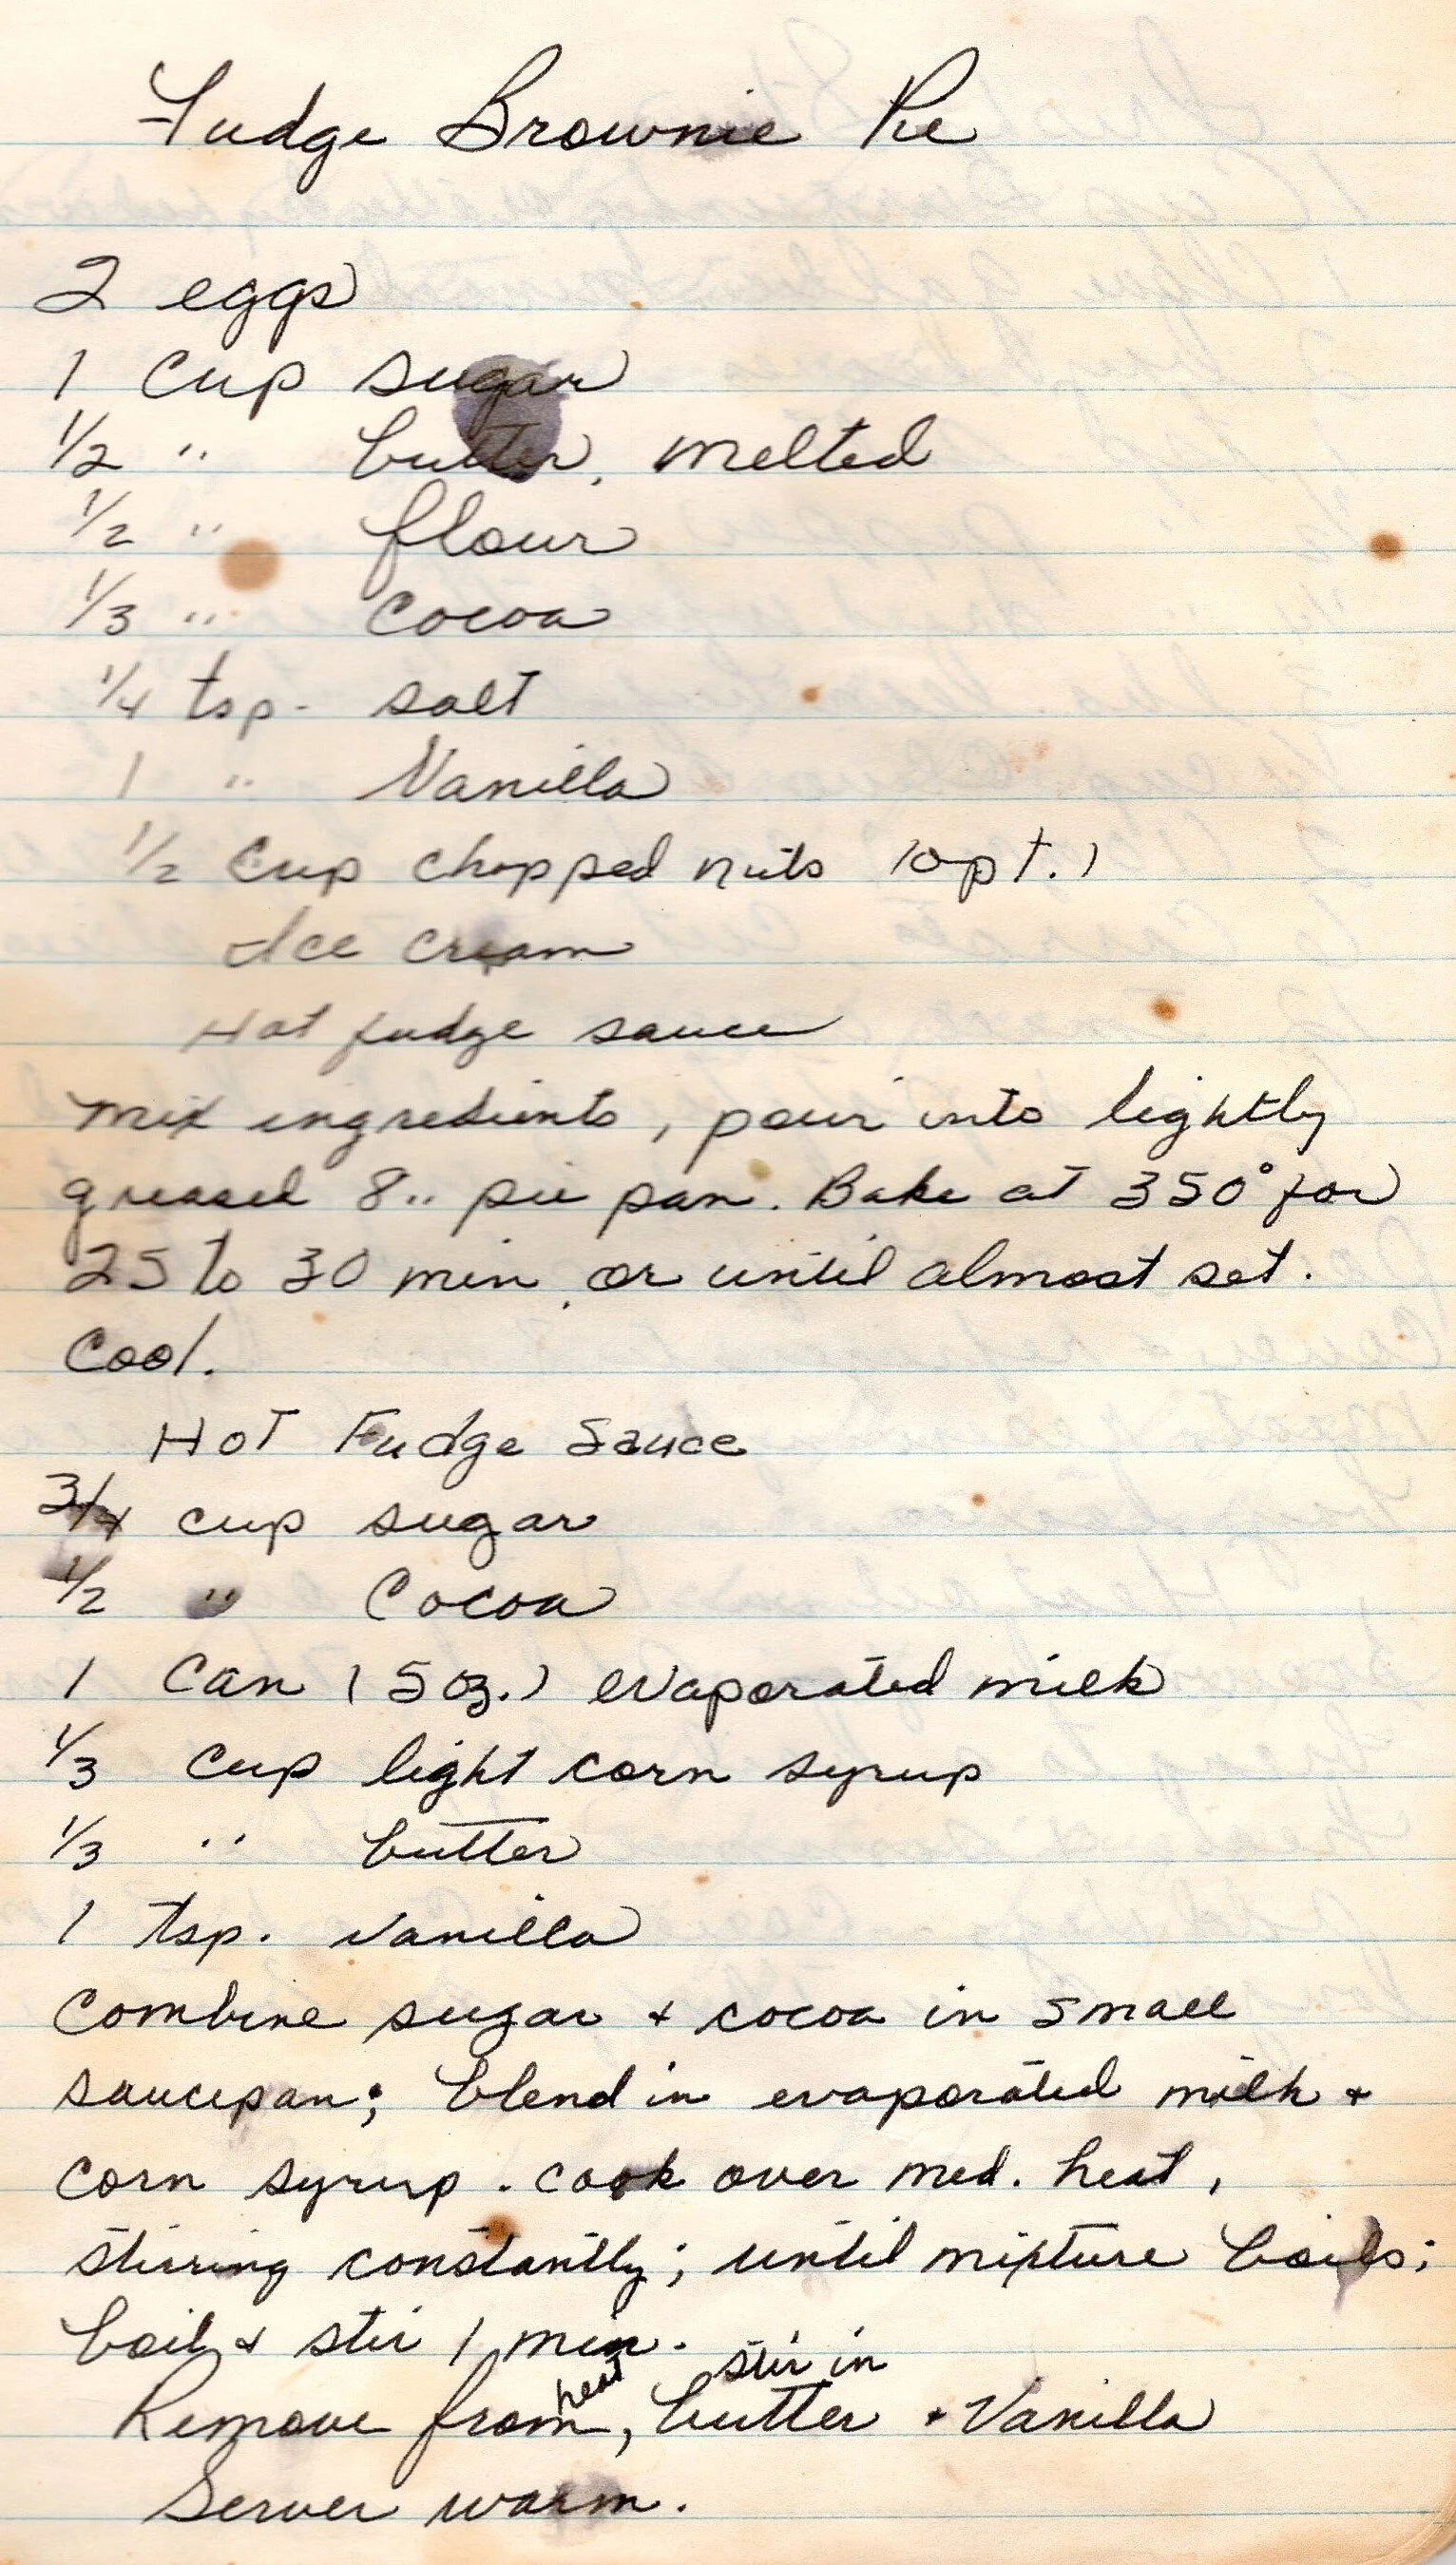 Fudge Brownie Pie
2 eggs
1 cup sugar
1/2 " butter, melted
1/2 " flour
1/3 " cocoa
1/4 tsp. salt
1 " Vanilla
1/2 cup chopped nuts (opt.)
Ice cream
Hot fudge sauce
Mix ingredients, pour into lightly
greased 8" pie pan. Bake at 350° for
25 to 30 min, or until almost set.
Cool.
Hot Fudge Sauce
3/4 cup sugar
1/2 " Cocoa
1 can (5 oz.) evaporated milk
1/3 cup light corn syrup
1/3 " butter
1 tsp. vanilla
Combine sugar + cocoa in small
saucepan; blend in evaporated milk +
corn syrup. cook over med. heat,
stirring constantly; until mixture boils;
boil & stir 1 min.
Remove from heat, stir in butter + Vanilla
Server warm.